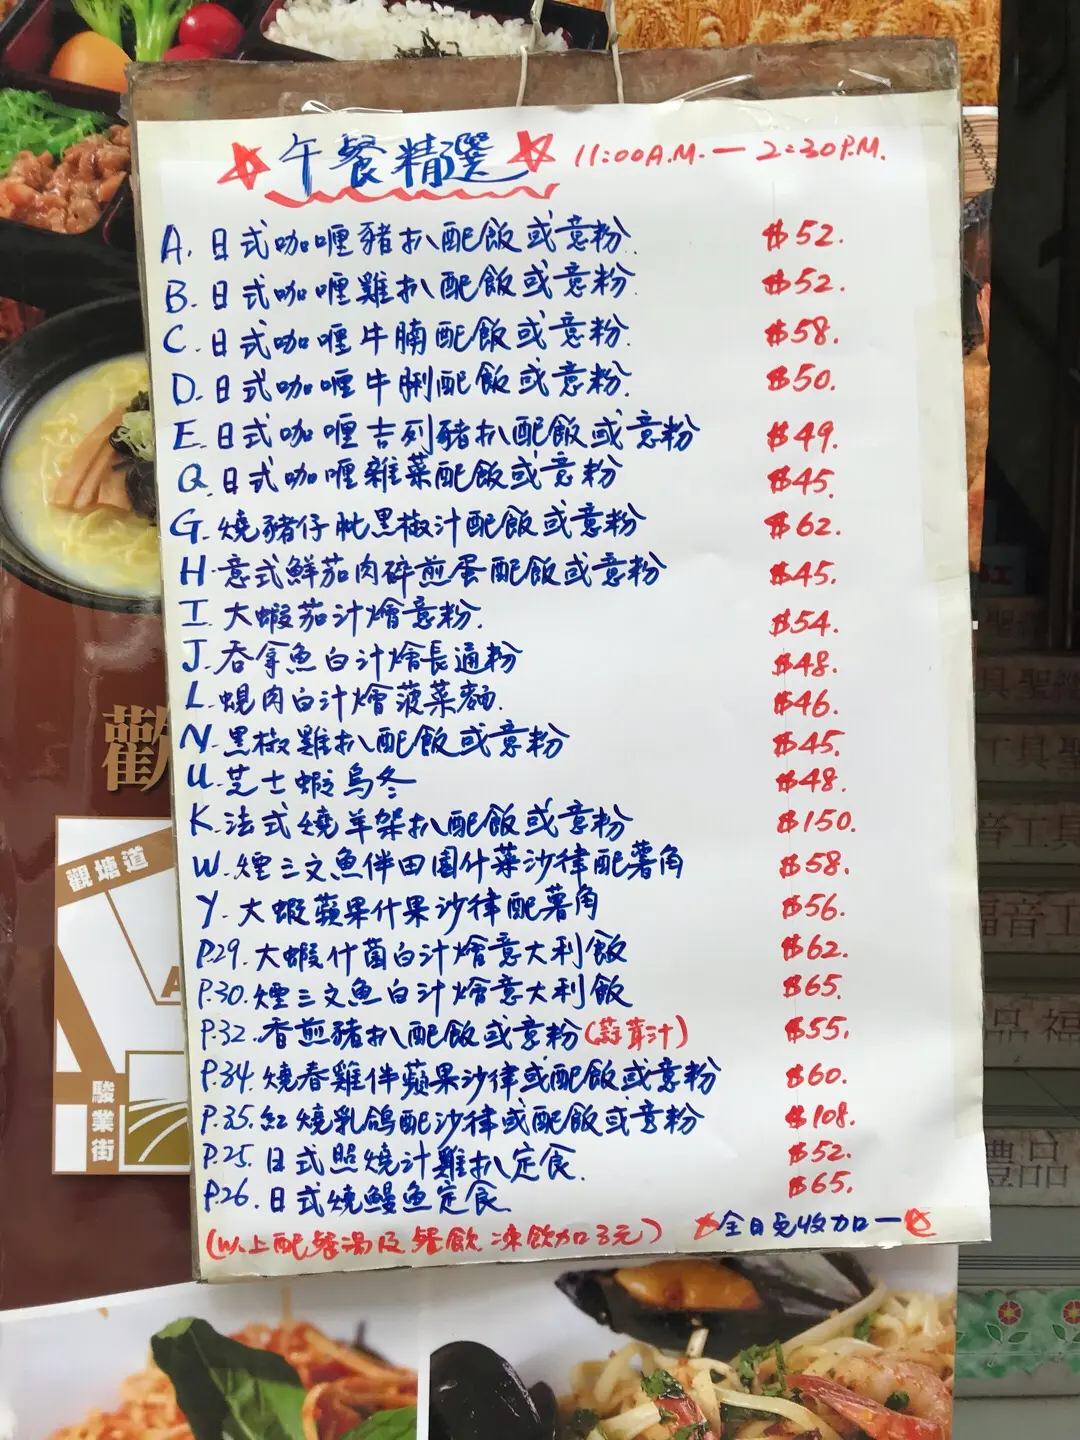 午餐精選 11:00A.M. — 2:30P.M.
A. 日式咖喱豬扒配飯或意粉. $52.
B. 日式咖喱雞扒配飯或意粉. $52.
C. 日式咖喱牛腩配飯或意粉. $58.
D. 日式咖喱牛脷配飯或意粉. $50.
E. 日式咖喱吉列豬扒配飯或意粉 $49.
Q. 日式咖喱雜菜配飯或意粉 $45.
G. 燒豬仔髀黑椒汁配飯或意粉 $62.
H. 意式鮮茄肉碎煎蛋配飯或意粉 $45.
I. 大蝦茄汁燴意粉. $54.
J. 吞拿魚白汁燴長通粉 $48.
L. 蜆肉白汁燴菠菜麵. $46.
N. 黑椒雞扒配飯或意粉 $45.
U. 芝士蝦烏冬 $48.
K. 法式燒羊架扒配飯或意粉 $150.
W. 煙三文魚伴田園什菜沙律配薯角 $58.
Y. 大蝦蘋果什果沙律配薯角 $56.
P.29. 大蝦什菌白汁燴意大利飯 $62.
P.30. 煙三文魚白汁燴意大利飯 $65.
P.32. 香煎豬扒配飯或意粉(蒜茸汁) $55.
P.34. 燒春雞伴蘋果沙律或配飯或意粉 $60.
P.35. 紅燒乳鴿配沙律或配飯或意粉 $108.
P.25. 日式照燒汁雞扒定食. $52.
P.26. 日式燒鰻魚定食. $65.
(以上配餐湯及餐飲 凍飲加3元) 全日免收加一
歡
觀塘道
駿業街